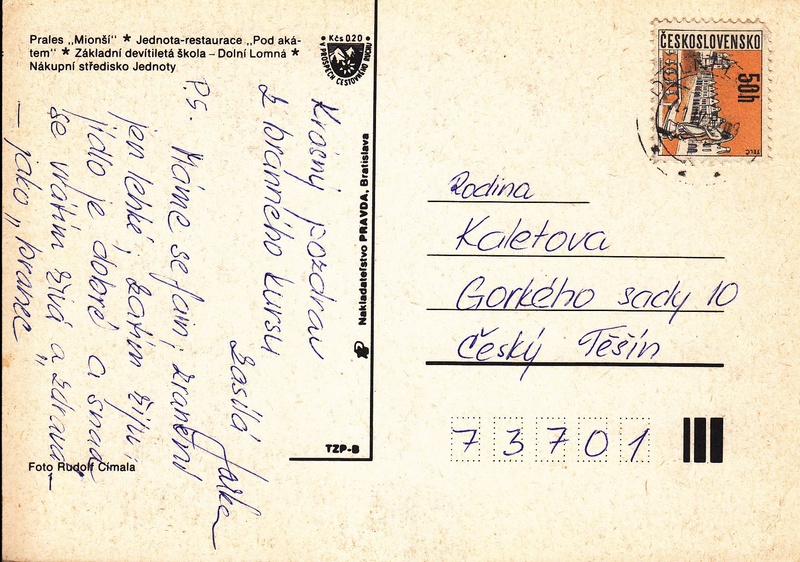 Prales „Mionší" * Jednota-restaurace „Pod aká-
tem" * Základní devítiletá škola – Dolní Lomná *
Nákupní středisko Jednoty
Kčs 0,20
V PROSPĚCH CESTOVNÍHO RUCHU
Krásný pozdrav
z branného kursu
zasílá Jarka
P.S. Máme se fain, zranění
jen lehké, zatím žiju,
jídlo je dobré a snad
se vrátím živá a zdravá
– jako „branec"
Foto Rudolf Címala
1
Nakladatelství PRAVDA, Bratislava
TZP-B
ČESKOSLOVENSKO
50h
TELČ
Rodina
Kaletova
Gorkého sady 10
Český Těšín
73701